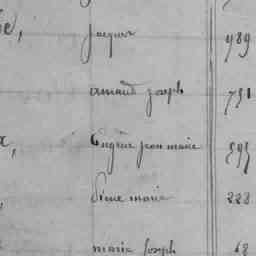 jacques 989
armand joseph 751
Eugène jean marie 595
Pierre marie 228
marie joseph 68